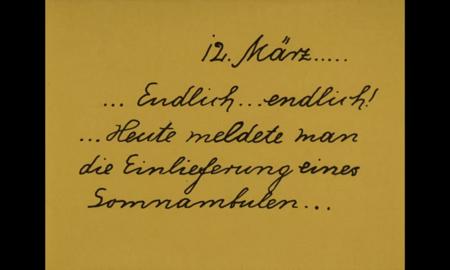 12. März.....
... Endlich... endlich!
... Heute meldete man
die Einlieferung eines
Somnambulen...